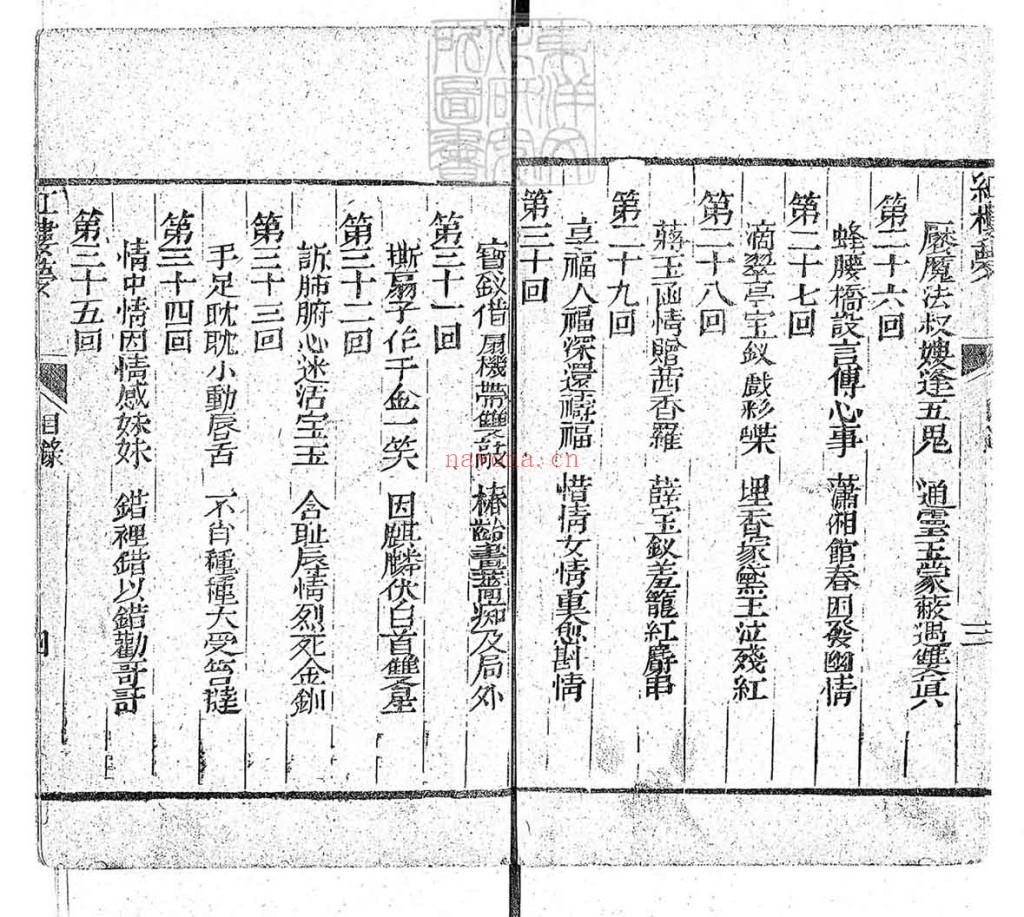 紅樓夢
三
魘魔法叔嫂逢五鬼 通靈玉蒙蔽遇雙真
第二十六回
蜂腰橋設言傳心事 瀟湘館春困發幽情
第二十七回
滴翠亭宝釵戲彩蝶 埋香塚黛玉泣殘紅
第二十八回
蔣玉函情贈茜香羅 薛宝釵羞籠紅麝串
第二十九回
享福人福深還禱福 惜情女情重愈斟情
第三十回
寶釵借扇機帶雙敲 椿齡畫薔痴及局外
第三十一回
撕扇子作千金一笑 因麒麟伏白首雙星
第三十二回
訴肺腑心迷活宝玉 含耻辱情烈死金釧
第三十三回
手足眈眈小動唇舌 不肖種種大受笞撻
第三十四回
情中情因情感妹妹 錯裡錯以錯勸哥哥
第三十五回
紅樓夢
目錄
四
東洋文化研究所圖書
nayona.cn